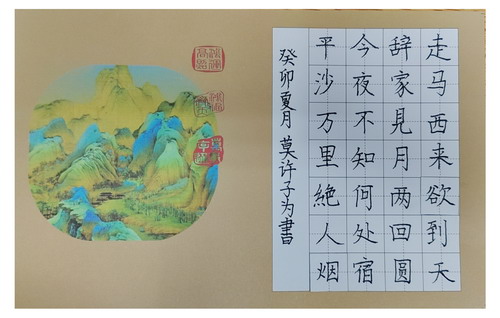 走马西来欲到天
辞家見月两回圆
今夜不知何处宿
平沙万里絶人烟
癸卯夏月莫许子为書